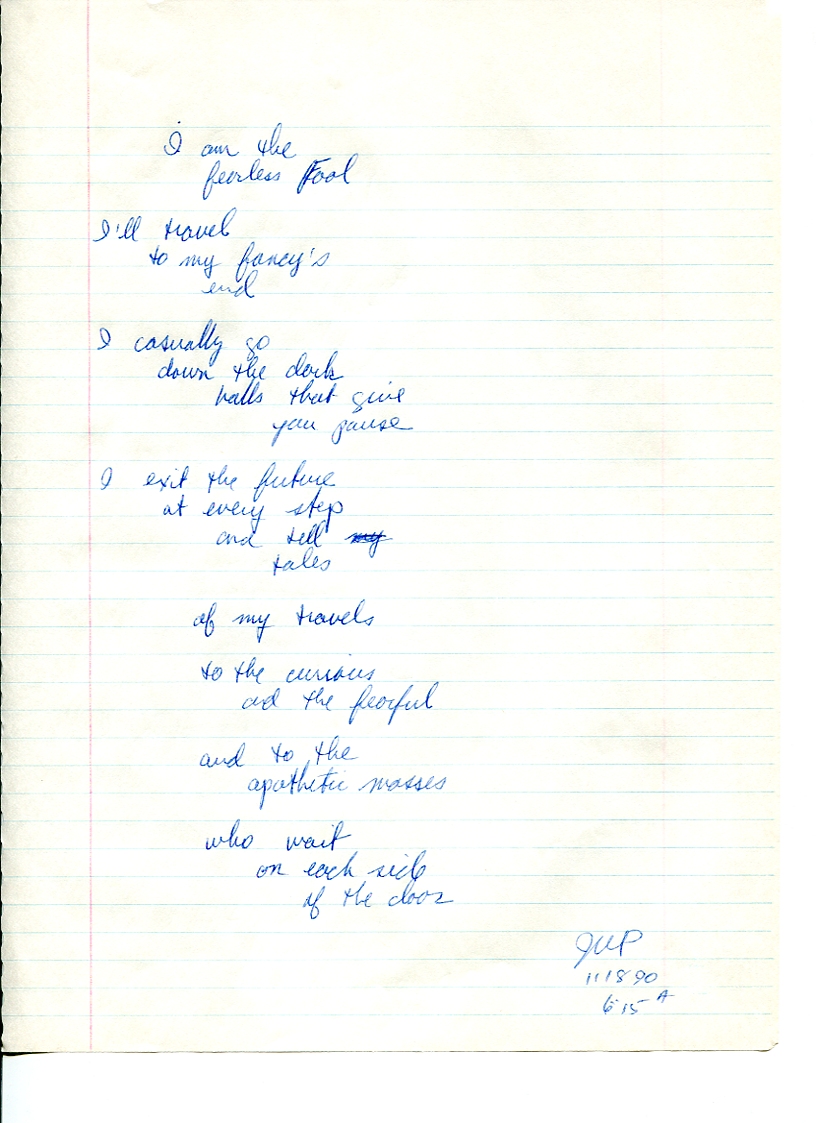 I am the
fearless Fool
I'll travel
to my fancy's
end
I casually go
down the dark
halls that give
you pause
I exit the future
at every step
and tell my
tales
of my travels
to the curious
ad the fearful
and to the
apathetic masses
who wait
on each side
of the door
JWP
11 18 90
6 15 A